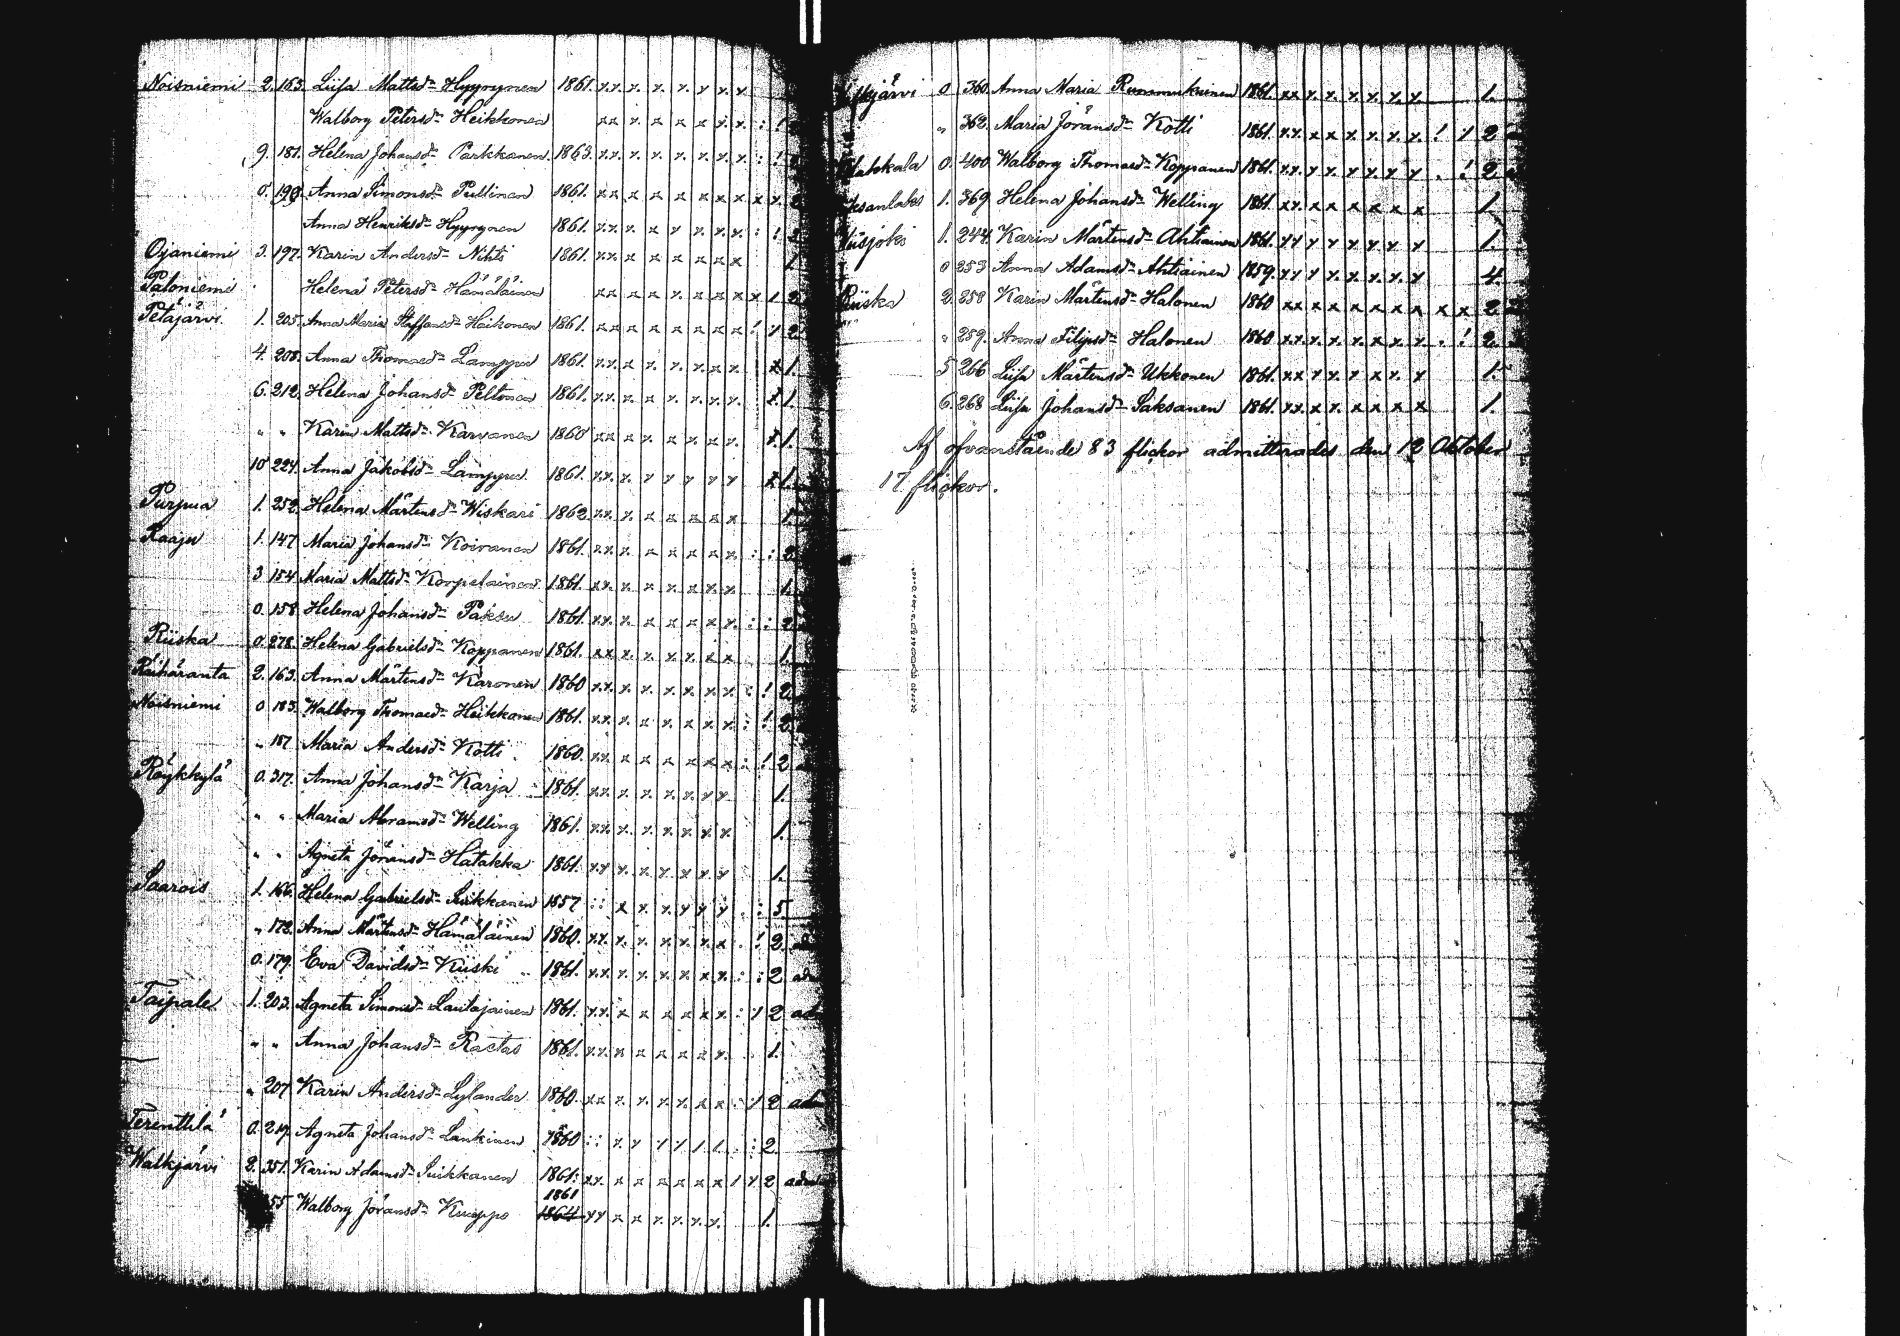 Noisniemi 2. 163. Liisa Mattsdr Hyyrynen 1861. x x x. x. x. x x x
Walborg Petersdr Heikkonen x x x. x x x x. x. : !
9. 181. Helena Johansdr Parkkonen 1863. x. x. x. x. x. x. x. x. : !
0. 198. Anna Simonsdr Pullinen 1861. x x x x x x x x x x. 2
Anna Henriksdr Hyyrynen 1861. x. x. x. x x x. x. x. : ! 2
Ojaniemi 3. 197. Karin Andersdr Nihti 1861. x x x x x x x x 1
Paloniemi Helena Petersdr Hämäläinen x x x x. x x x x x 1 2
Petäjärvi 1. 205. Anna Maria Staffansdr Heikonen 1861. x x x x x x x x ! 1 2
4. 208. Anna Thomasdr Lamppu 1861. x. x. x x. x. x. x x. x 1.
6. 212. Helena Johansdr Peltonen 1861. x. x. x. x x. x. x. x. x 1.
" " Karin Mattsdr Karvonen 1860 x x x x x. x. x x. x. 1.
10 224. Anna Jakobsdr Lamppu 1861. x. x. x. x x x x x x 1.
Purpua 1. 252. Helena Mårtensdr Wiskari 1862 x x. x. x x x x x 1.
Raaju 1. 147 Maria Johansdr Koivonen 1861. x x x. x x x x x. : : 2
3 154 Maria Mattsdr Korpelainen 1861. x x. x. x. x x x x 1.
0. 158 Helena Johansdr Paksu 1861. x x x. x x x x x. : : 2
Riiska 0. 278. Helena Gabrielsdr Kopponen 1861. x x x. x. x. x. x x 1.
Räihäranta 2. 163. Anna Mårtensdr Karonen 1860 x x. x. x. x. x. x. x. : ! 2
Noisniemi 0 183. Walborg Thomasdr Heikkonen 1861. x x. x. x x. x x x. : ! 2
" 187 Maria Andersdr Kotti 1860. x x. x x x x x x : ! 2
Röykkylä 0. 317. Anna Johansdr Karja 1861. x x. x. x. x. x. x x 1.
" " Maria Abramsdr Welling 1861. x x. x. x. x. x. x. x. 1.
" " Agneta Jöransdr Hatakka 1861. x x x. x x x. x. x 1.
Saarois 1. 166. Helena Gabrielsdr Suikkanen 1857 : : x x. x. x x x . : 5
" 172. Anna Mårtensdr Hämäläinen 1860. x x. x. x. x. x. x. x . ! 2. ad
0. 179. Eva Davidsdr Kiiski 1861. x x. x. x. x. x. x x. : : 2 adm
Taipale 1. 203. Agneta Simonsdr Lautajainen 1861. x x. x x x x x x. : 1 2 adm
" " Anna Johansdr Ractas 1861. x x. x x x x x x. 1.
" 207 Karin Andersdr Lylander 1860. x x x. x. x. x. x x . 1 2 adm
Terenttilä 0. 219. Agneta Johansdr Laukinen 1860 : : x. x x x 1 1 . : 2
Walkjärvi 2. 351. Karin Adamsdr Suikkanen 1861: x x. x x x x x x 1 x 2 adm
1861
55 Walborg Jöransdr Kuoppo 1864 x x x x x. x. x. x. 1.
0 360. Anna Maria Rummukainen 1861. x x x. x. x. x. x. x. 1.
" 362. Maria Jöransdr Kotti 1861. x x. x x x. x. x. x. ! 1 2
0. 400. Walborg Thomasdr Kopponen 1861. x x. x x x x. x x . ! 2
1. 369 Helena Johansdr Welling 1861. x x. x x x x x x 1.
1. 244. Karin Mårtensdr Ahtiainen 1861. x x x x x. x. x. x 1.
0 253 Anna Adamsdr Ahtiainen 1859. x x x x. x. x. x. x 4.
Riiska 2. 258 Karin Mårtensdr Halonen 1860 x x x x x x x x x x 2
" 259. Anna Filipsdr Halonen 1860 x x. x. x. x. x x. x. . ! 2
5 266 Liisa Mårtensdr Ukkonen 1861. x x x x. x x x. x 1.
6. 268 Liisa Johansdr Saksanen 1861. x x. x x. x x x x 1.
Af ofvanstående 83 flickor admitterades den 12 Oktober
17 flickor.